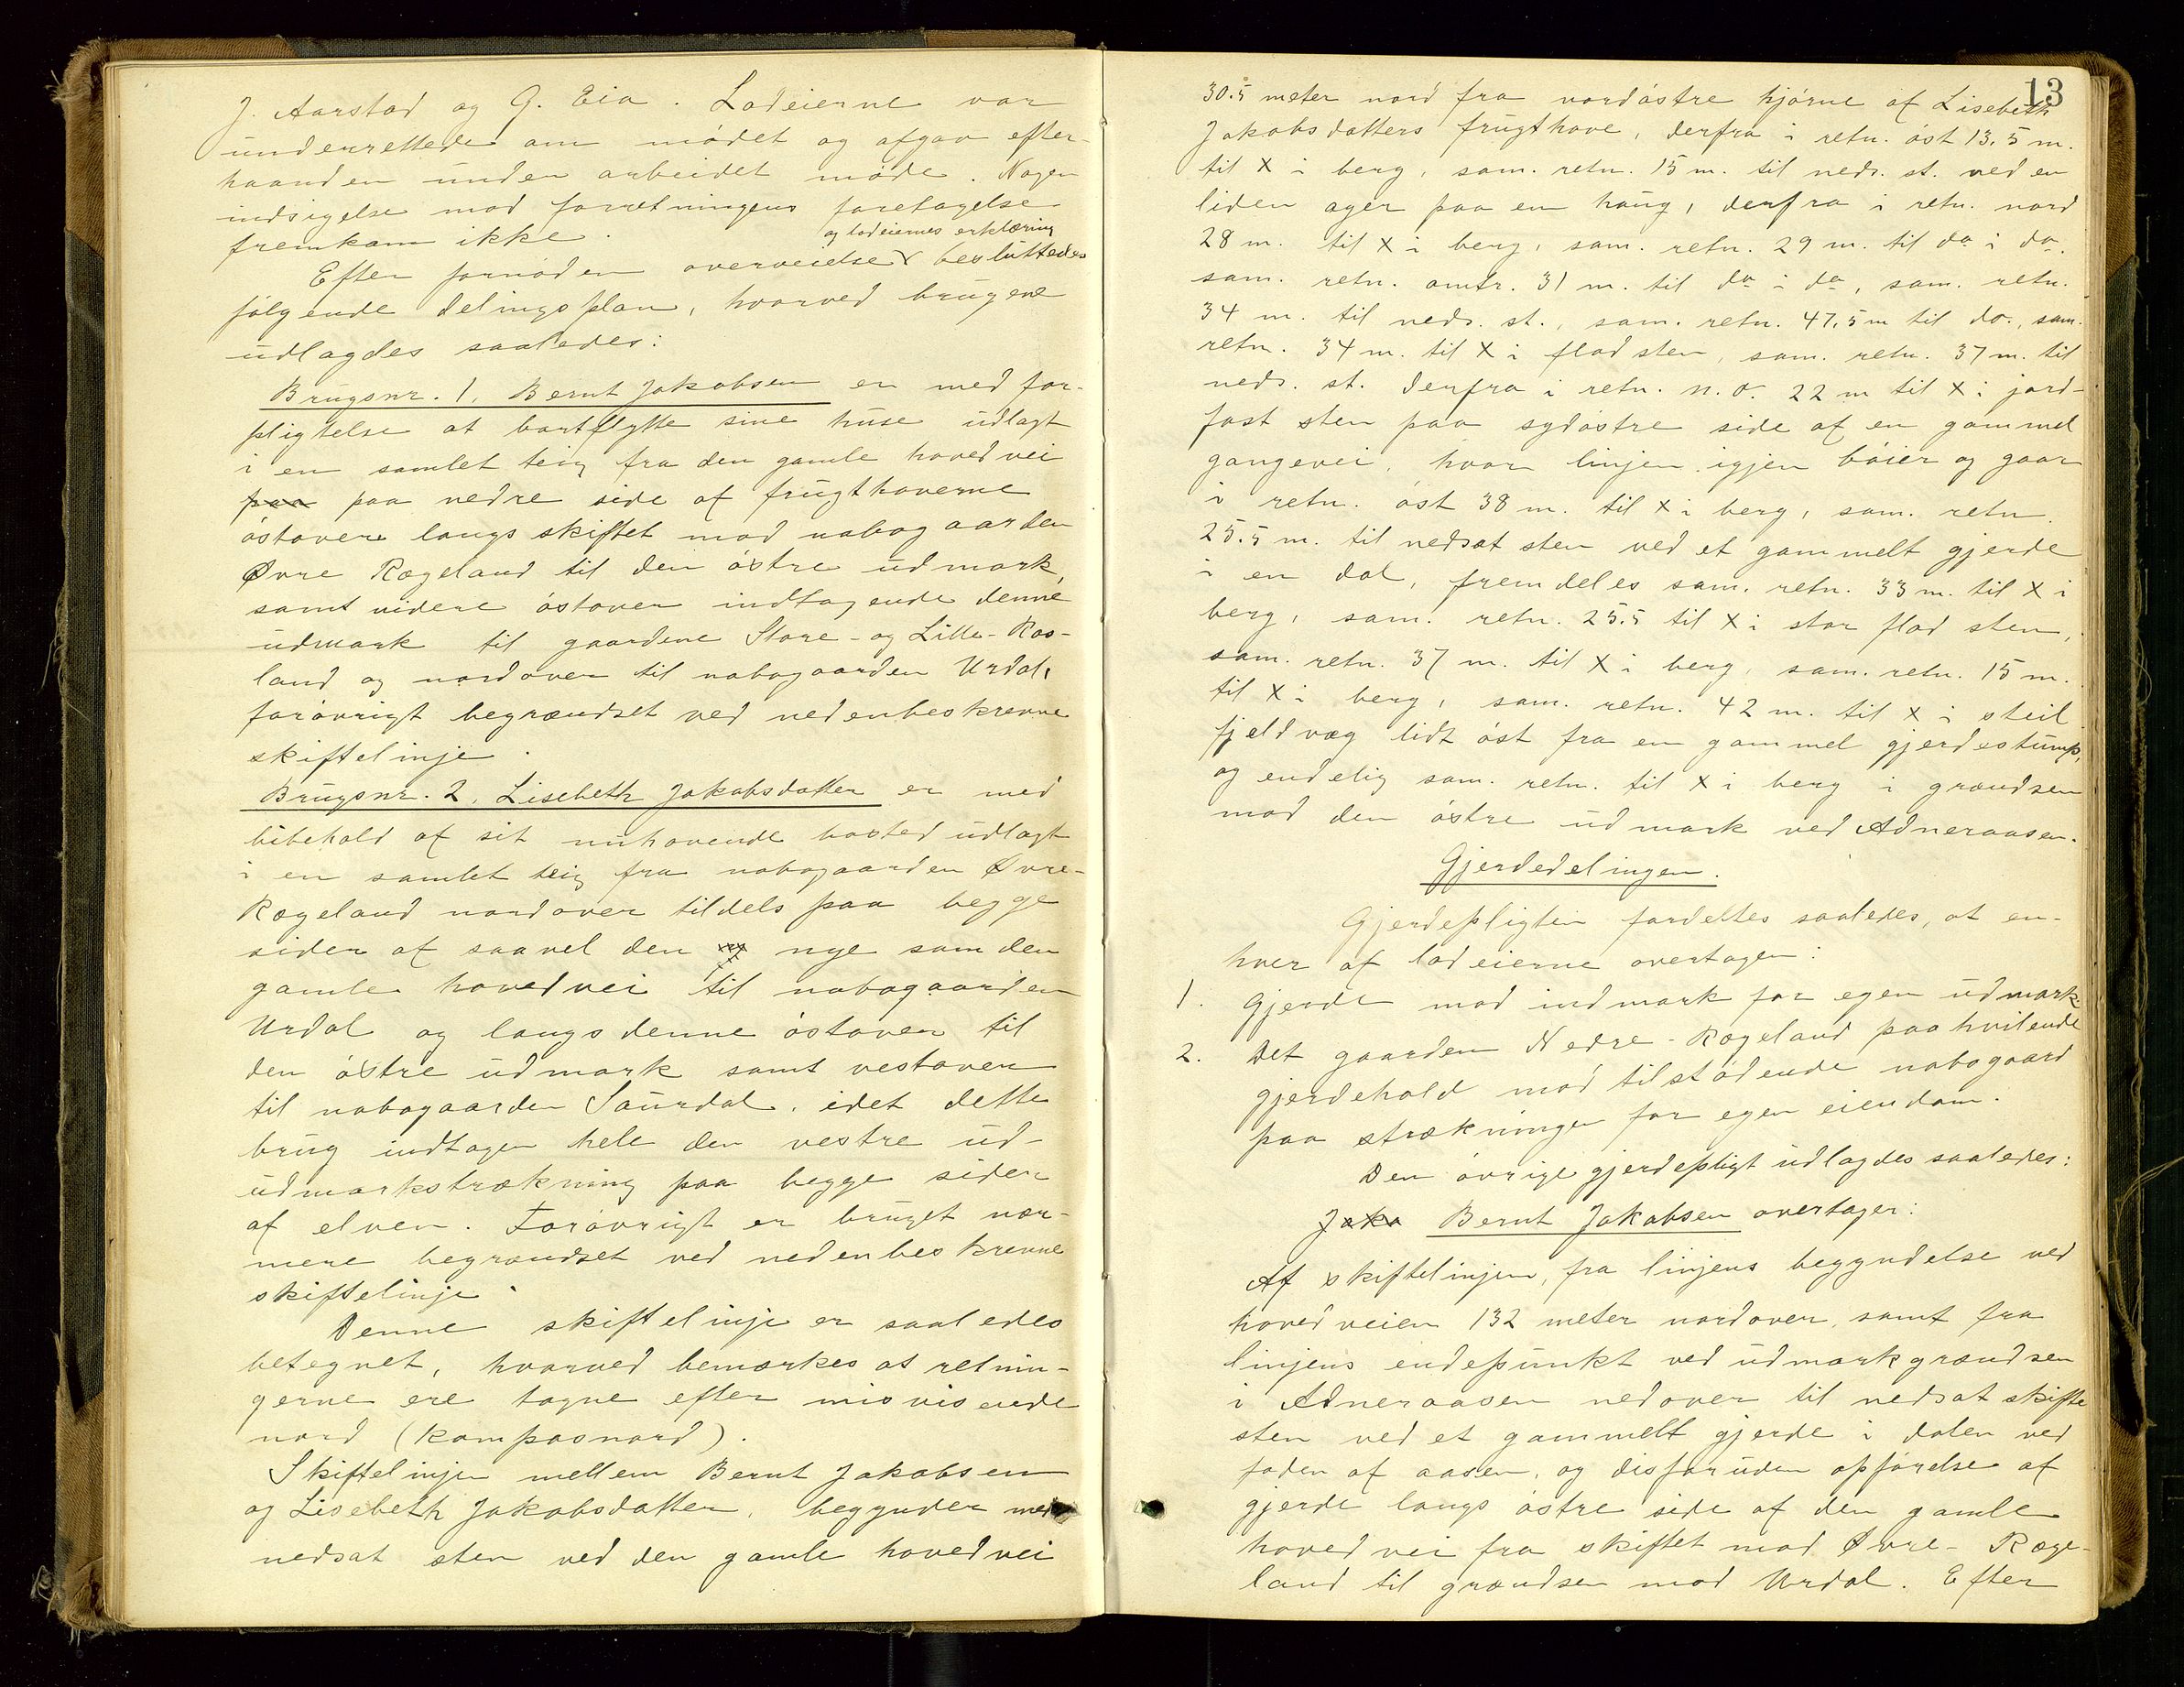 J. Aarstad og G. Eia. Lodeierne var
underrettede om mødet og afgav efter-
haanden under arbeidet møde. Nogen
indsigelse mod forretningens foretagelse
fremkom ikke.
og lodeiernes erklæring
Efter fornøden overveielse besluttedes
følgende delingsplan, hvorved brugene
udlagdes saaledes:
Brugsnr. 1. Bernt Jakobsen er med for-
pligtelse at bortflytte sine huse udlagt
i en samlet teig fra den gamle hovedvei
paa paa nedre side af frugthaverne
østover langs skiftet mod nabogaarden
Øvre Rægeland til den østre udmark,
samt videre østover indtagende denne
udmark til gaardene Store- og Lille-Ros-
land og nordover til nabogaarden Urdal,
forøvrigt begrændset ved nedenbeskrevne
skiftelinje.
Brugsnr. 2. Lisebeth Jakobsdatter er med
bibehold af sit nuhavende bosted udlagt
i en samlet teig fra nabogaarden Øvre-
Rægeland nordover tildels paa begge
sider af saavel den ny nye som den
gamle hovedvei til nabogaarden
Urdal og langs denne østover til
den østre udmark samt vestover
til nabogaarden Saurdal, idet dette
brug indtager hele den vestre ud-
udmarkstrækning paa begge sider
af elven. Forøvrigt er bruget nær-
mere begrændset ved nedenbeskrevne
skiftelinje.
Denne skiftelinje er saaledes
betegnet, hvorved bemærkes at retnin-
gerne ere tagne efter misvisende
nord (kompasnord).
Skiftelinjen mellem Bernt Jakobsen
og Lisebeth Jakobsdatter, begynder med
nedsat sten ved den gamle hovedvei
13
30.5 meter nord fra nordøstre hjørne af Lisebeth
Jakobsdatters frugthave, derfra i retn. øst 13,5 m.
til X i berg, sam. retn. 15 m. til neds. st. ved en
liden ager paa en haug, derfra i retn. nord
28 m. til X i berg, sam. retn. 29 m. til do i do.
sam. retn. omtr. 31 m. til do i do, sam. retn.
34 m. til neds. st., sam. retn. 47,5 m til do., sam.
retn. 34 m. til X i flad sten, sam. retn. 37 m. til
neds. st. derfra i retn. n.o. 22 m til X i jord-
fast sten paa sydøstre side af en gammel
gangevei, hvor linjen igjen bøier og gaar
i retn. øst 38 m. til X i berg, sam. retn.
25.5 m. til nedsat sten ved et gammelt gjerde
i en dal, fremdeles sam. retn. 33 m. til X i
berg, sam. retn. 25.5 til X i stor flad sten,
sam. retn. 37 m. til X i berg, sam. retn. 15 m.
til X i berg, sam. retn. 42 m. til X i steil
fjeldvæg lidt øst fra en gammel gjerdestump,
og endelig sam. retn. til X i berg i grændsen
mod den østre udmark ved Adneraasen.
Gjerdedelingen.
Gjerdepligten fordeltes saaledes, at en-
hver af lodeierne overtager:
1. Gjerde mod indmark for egen udmark
2. Det gaarden Nedre-Rægeland paahvilende
gjerdehold mod tilstødende nabogaard
paa strækninger for egen eiendom.
Den øvrige gjerdepligt udlagdes saaledes:
Jako Bernt Jakobsen overtager:
Af skiftelinjen, fra linjens begyndelse ved
hovedveien 132 meter nordover, samt fra
linjens endepunkt ved udmarkgrændsen
i Adneraasen nedover til nedsat skifte
sten ved et gammelt gjerde i dalen ved
foden af aasen, og desforuden opførelse af
gjerde langs østre side af den gamle
hovedvei fra skiftet mod Øvre-Ræge-
land til grændsen mod Urdal. Efter